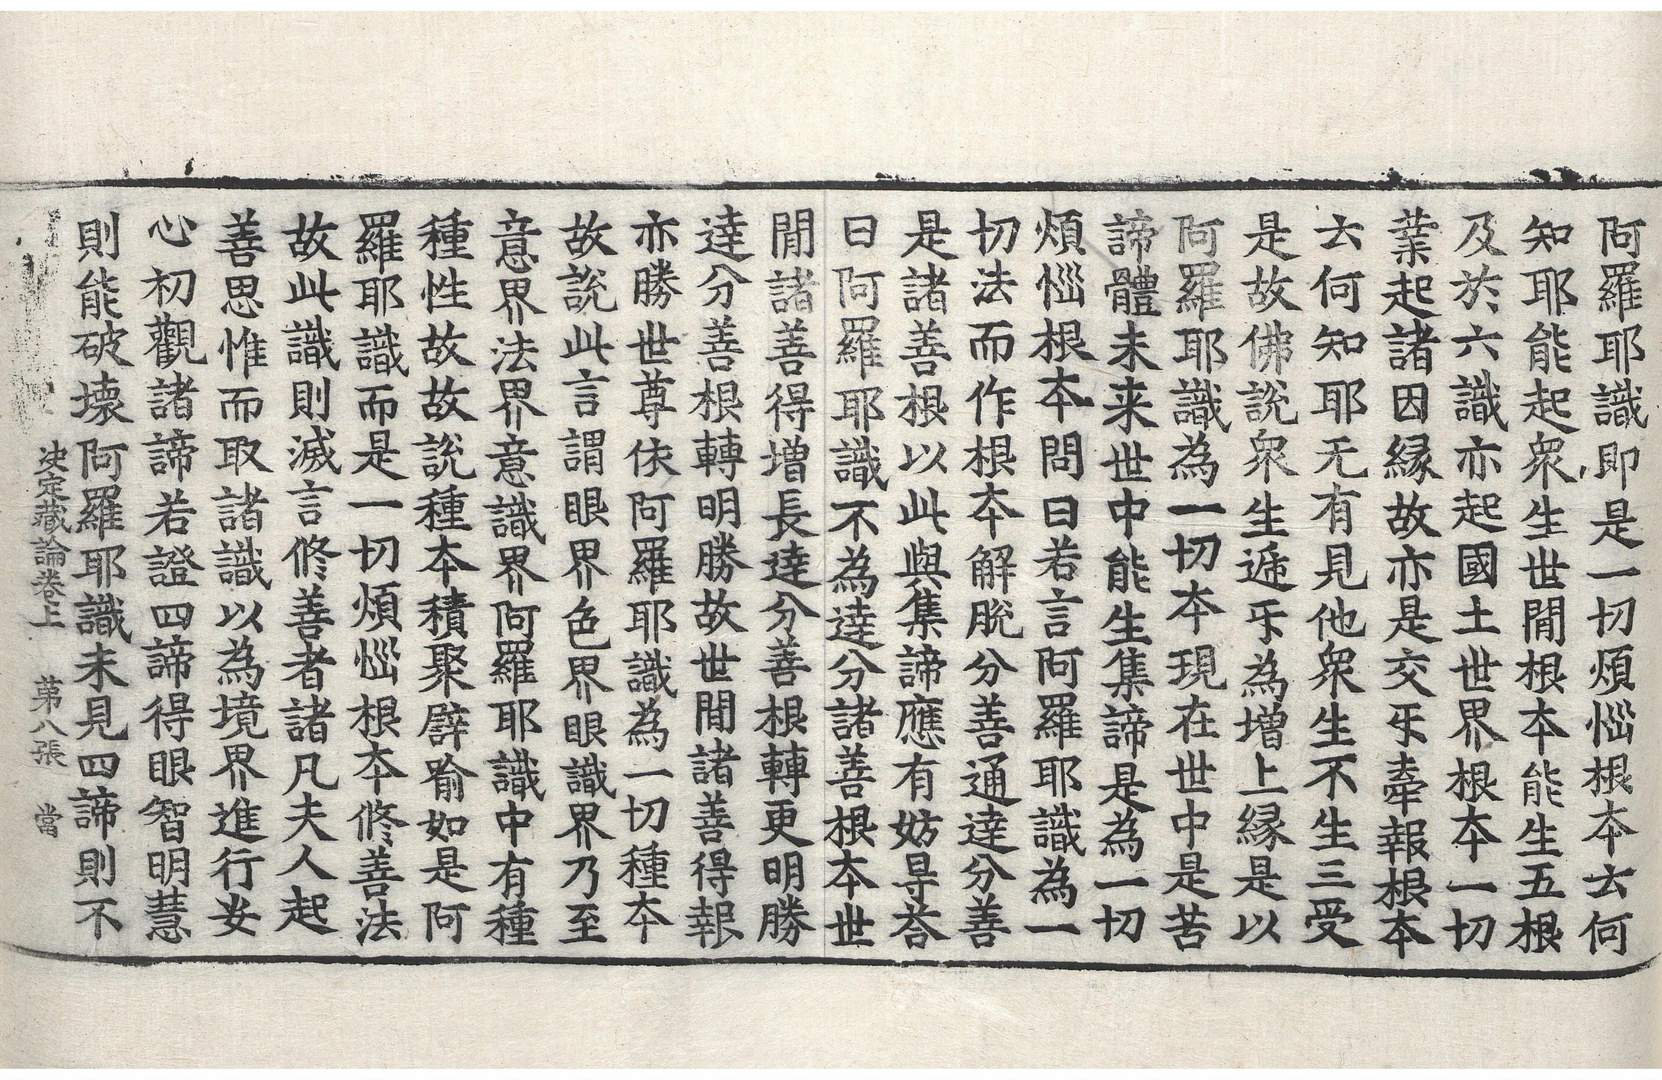 阿羅耶識即是一切煩惱根本云何
知耶能起衆生世間根本能生五根
及於六識亦起國土世界根本一切
業起諸因緣故亦是交牙牽報根本
云何知耶无有見他衆生不生三受
是故佛說衆生遞牙為增上緣是以
阿羅耶識為一切本現在世中是苦
諦體未来世中能生集諦是為一切
煩惱根本問曰若言阿羅耶識為一
切法而作根本解脫分善通達分善
是諸善根以此與集諦應有妨㝵荅
曰阿羅耶識不為達分諸善根本世
間諸善得增長達分善根轉更明勝
達分善根轉明勝故世間諸善得報
亦勝世尊依阿羅耶識為一切種本
故說此言謂眼界色界眼識界乃至
意界法界意識界阿羅耶識中有種
種性故故說種本積聚辟喻如是阿
羅耶識而是一切煩惱根本修善法
故此識則滅言修善者諸凡夫人起
善思惟而取諸識以為境界進行安
心初觀諸諦若證四諦得眼智明慧
則能破壞阿羅耶識未見四諦則不
决定藏論卷上　第八張　當